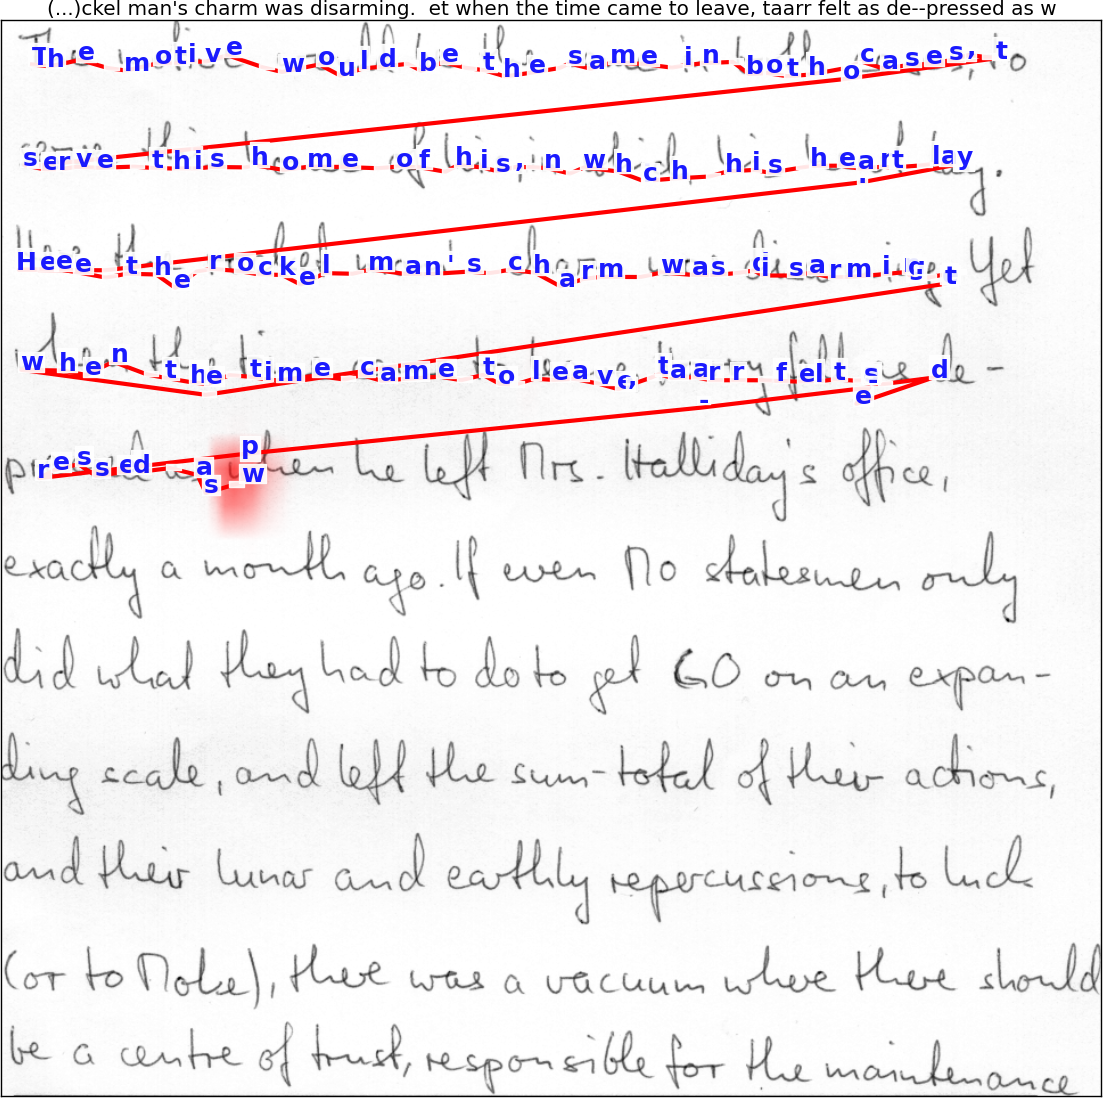 (...)ckel man's charm was disarming.  et when the time came to leave, taarr felt as de--pressed as w
The motive would be the same in both cases, to
serve this home of his, in which his heart lay.
Here the rockel man's charm was disarming. Yet
when the time came to leave, felt as de-
pressed as when he left Mrs. Halliday's office,
exactly a month ago. If even No statesmen only
did what they had to do to get GO on an expan-
ding scale, and left the sum-total of their actions,
and their lunar and earthly repercussions, to luck
(or to Moke), there was a vacuum where there should
be a centre of trust, responsible for the maintenance